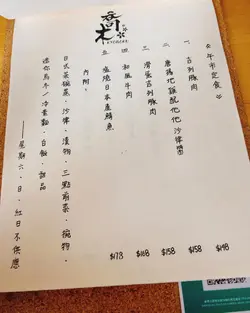 喬木
☆午市定食☆
一 吉列豚肉 $148
二 唐揚地雞配他他沙律醬 $158
三 滑蛋吉列豚肉 $158
四 和風牛肉 $168
五 鹽燒日本產鯖魚 $178
內附：
日式茶碗蒸·沙律·漬物·三點前菜·椀物·
迷你烏冬/冷素麵·白飯·甜品
——星期六·日·紅日不供應